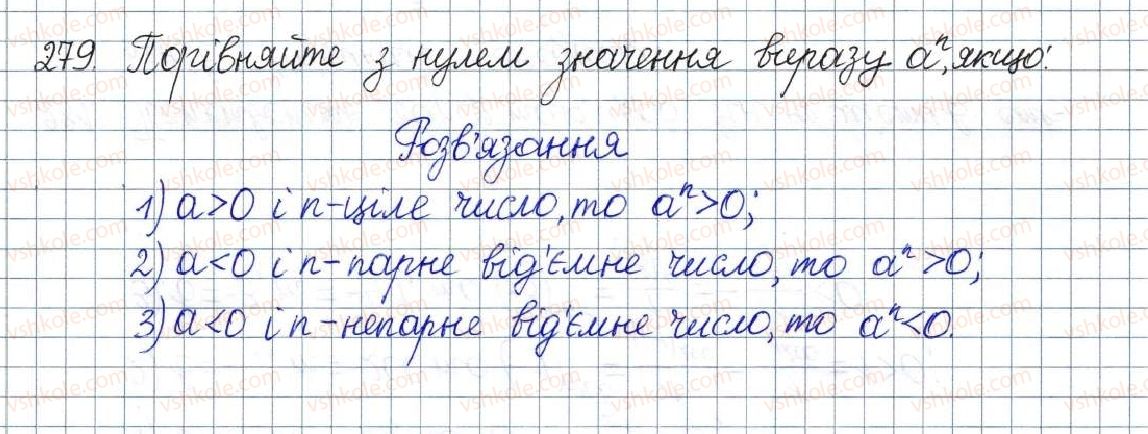 279. Порівняйте з нулем значення виразу aⁿ, якщо:
Розв'язання
1) a>0 і n-ціле число, то aⁿ>0;
2) a<0 і n-парне від'ємне число, то aⁿ>0;
3) a<0 і n-непарне від'ємне число, то aⁿ<0.